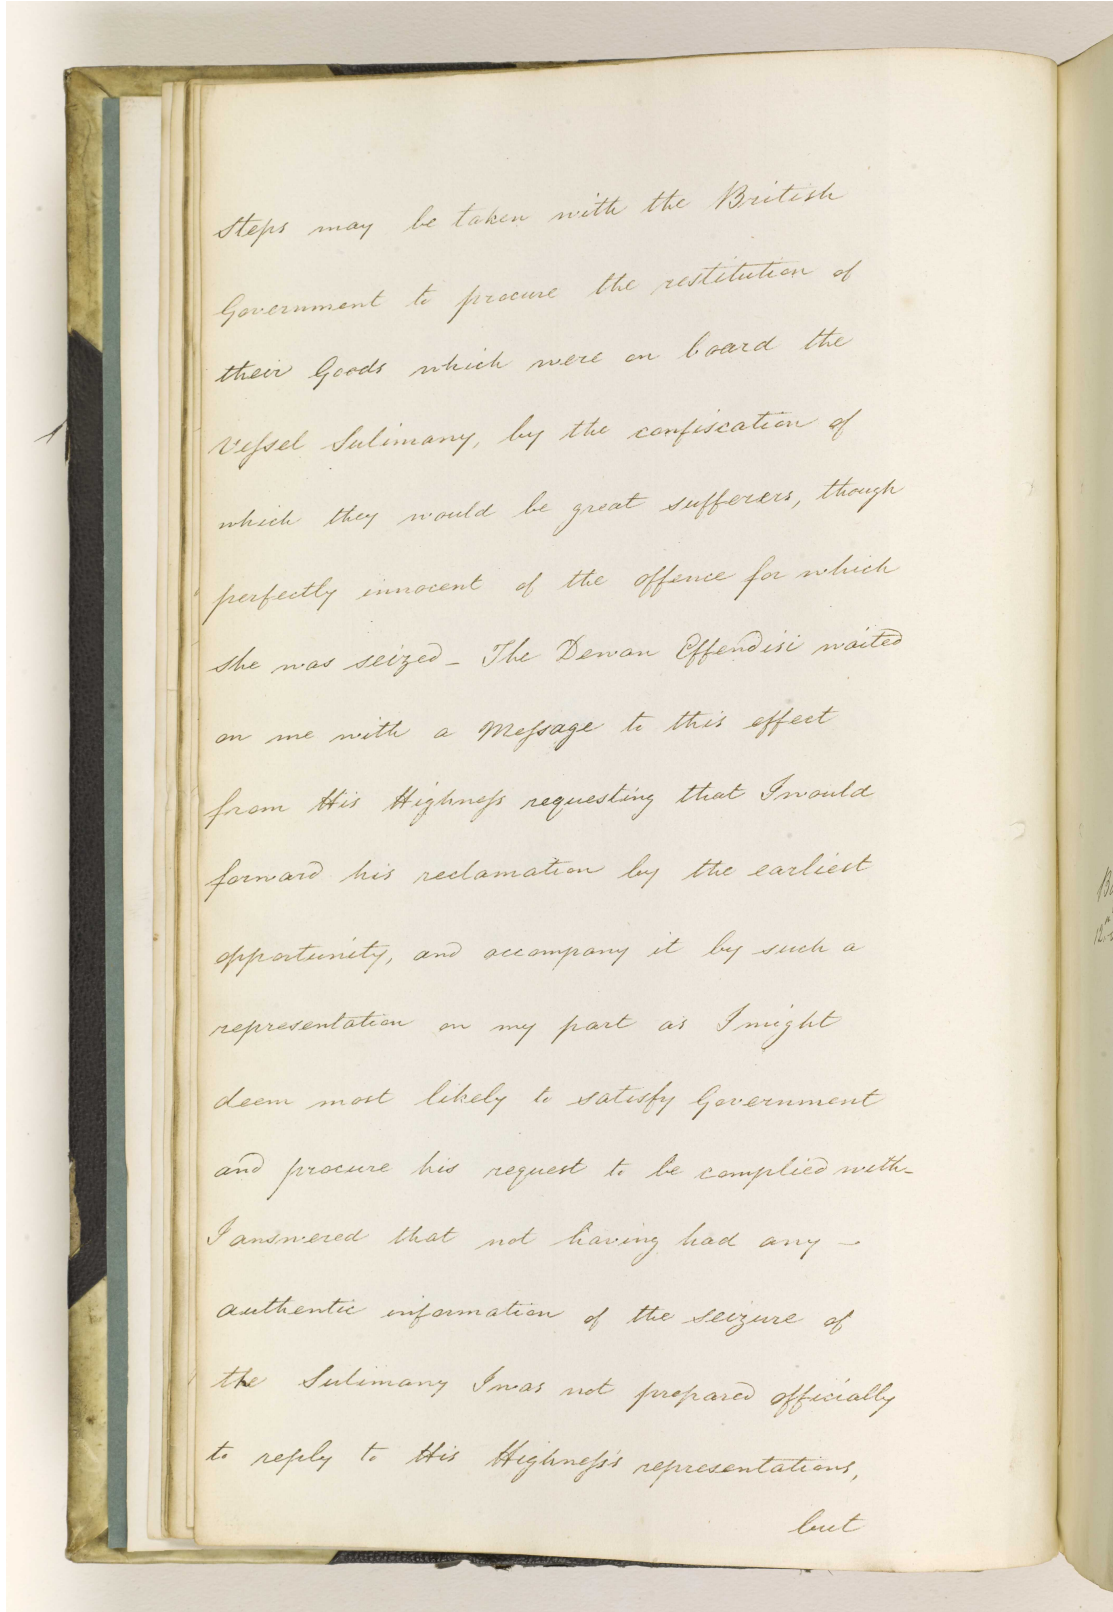 steps may be taken with the British
Government to procure the restitution of
their Goods which were on board the
Vessel Sulimany, by the confiscation of
which they would be great sufferers, though
perfectly innocent of the offence for which
she was seized_ The Dewan Effendisi waited
on me with a Message to this effect
from His Highness requesting that I would
forward his reclamation by the earliest
opportunity, and accompany it by such a
representation on my part as I might
deem most likely to satisfy Government
and procure his request to be complied with_
I answered that not having had any _
authentic information of the seizure of
the Sulimany I was not prepared officially
to reply to His Highness's representations,
but